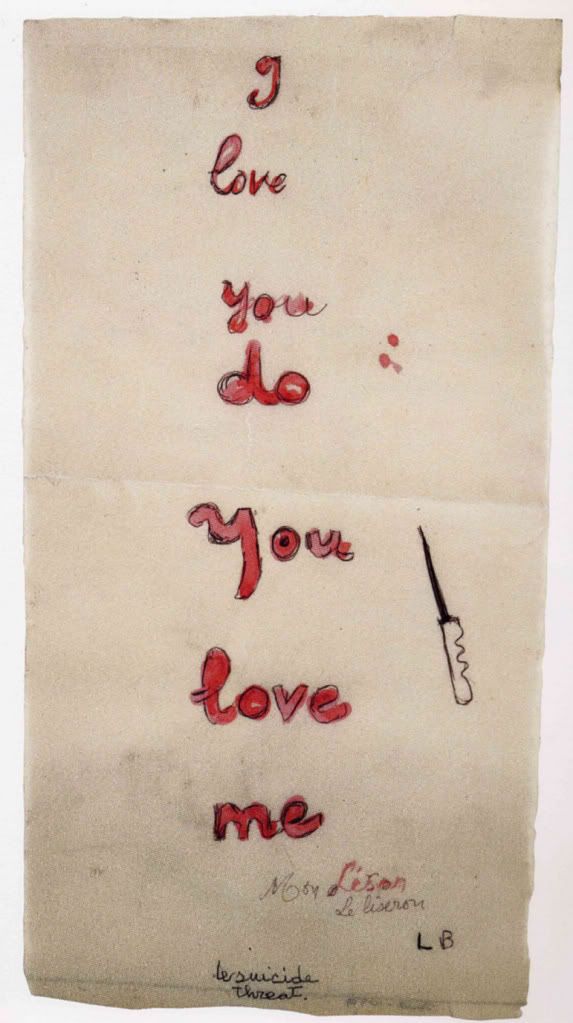 I
love
you
do
you
love
me
Mon Lison
Le liseron
LB
le suicide
threat.